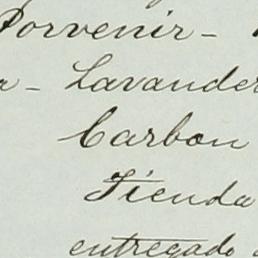 Porvenir -
a - Lavander
Carbon
Tienda
entregado